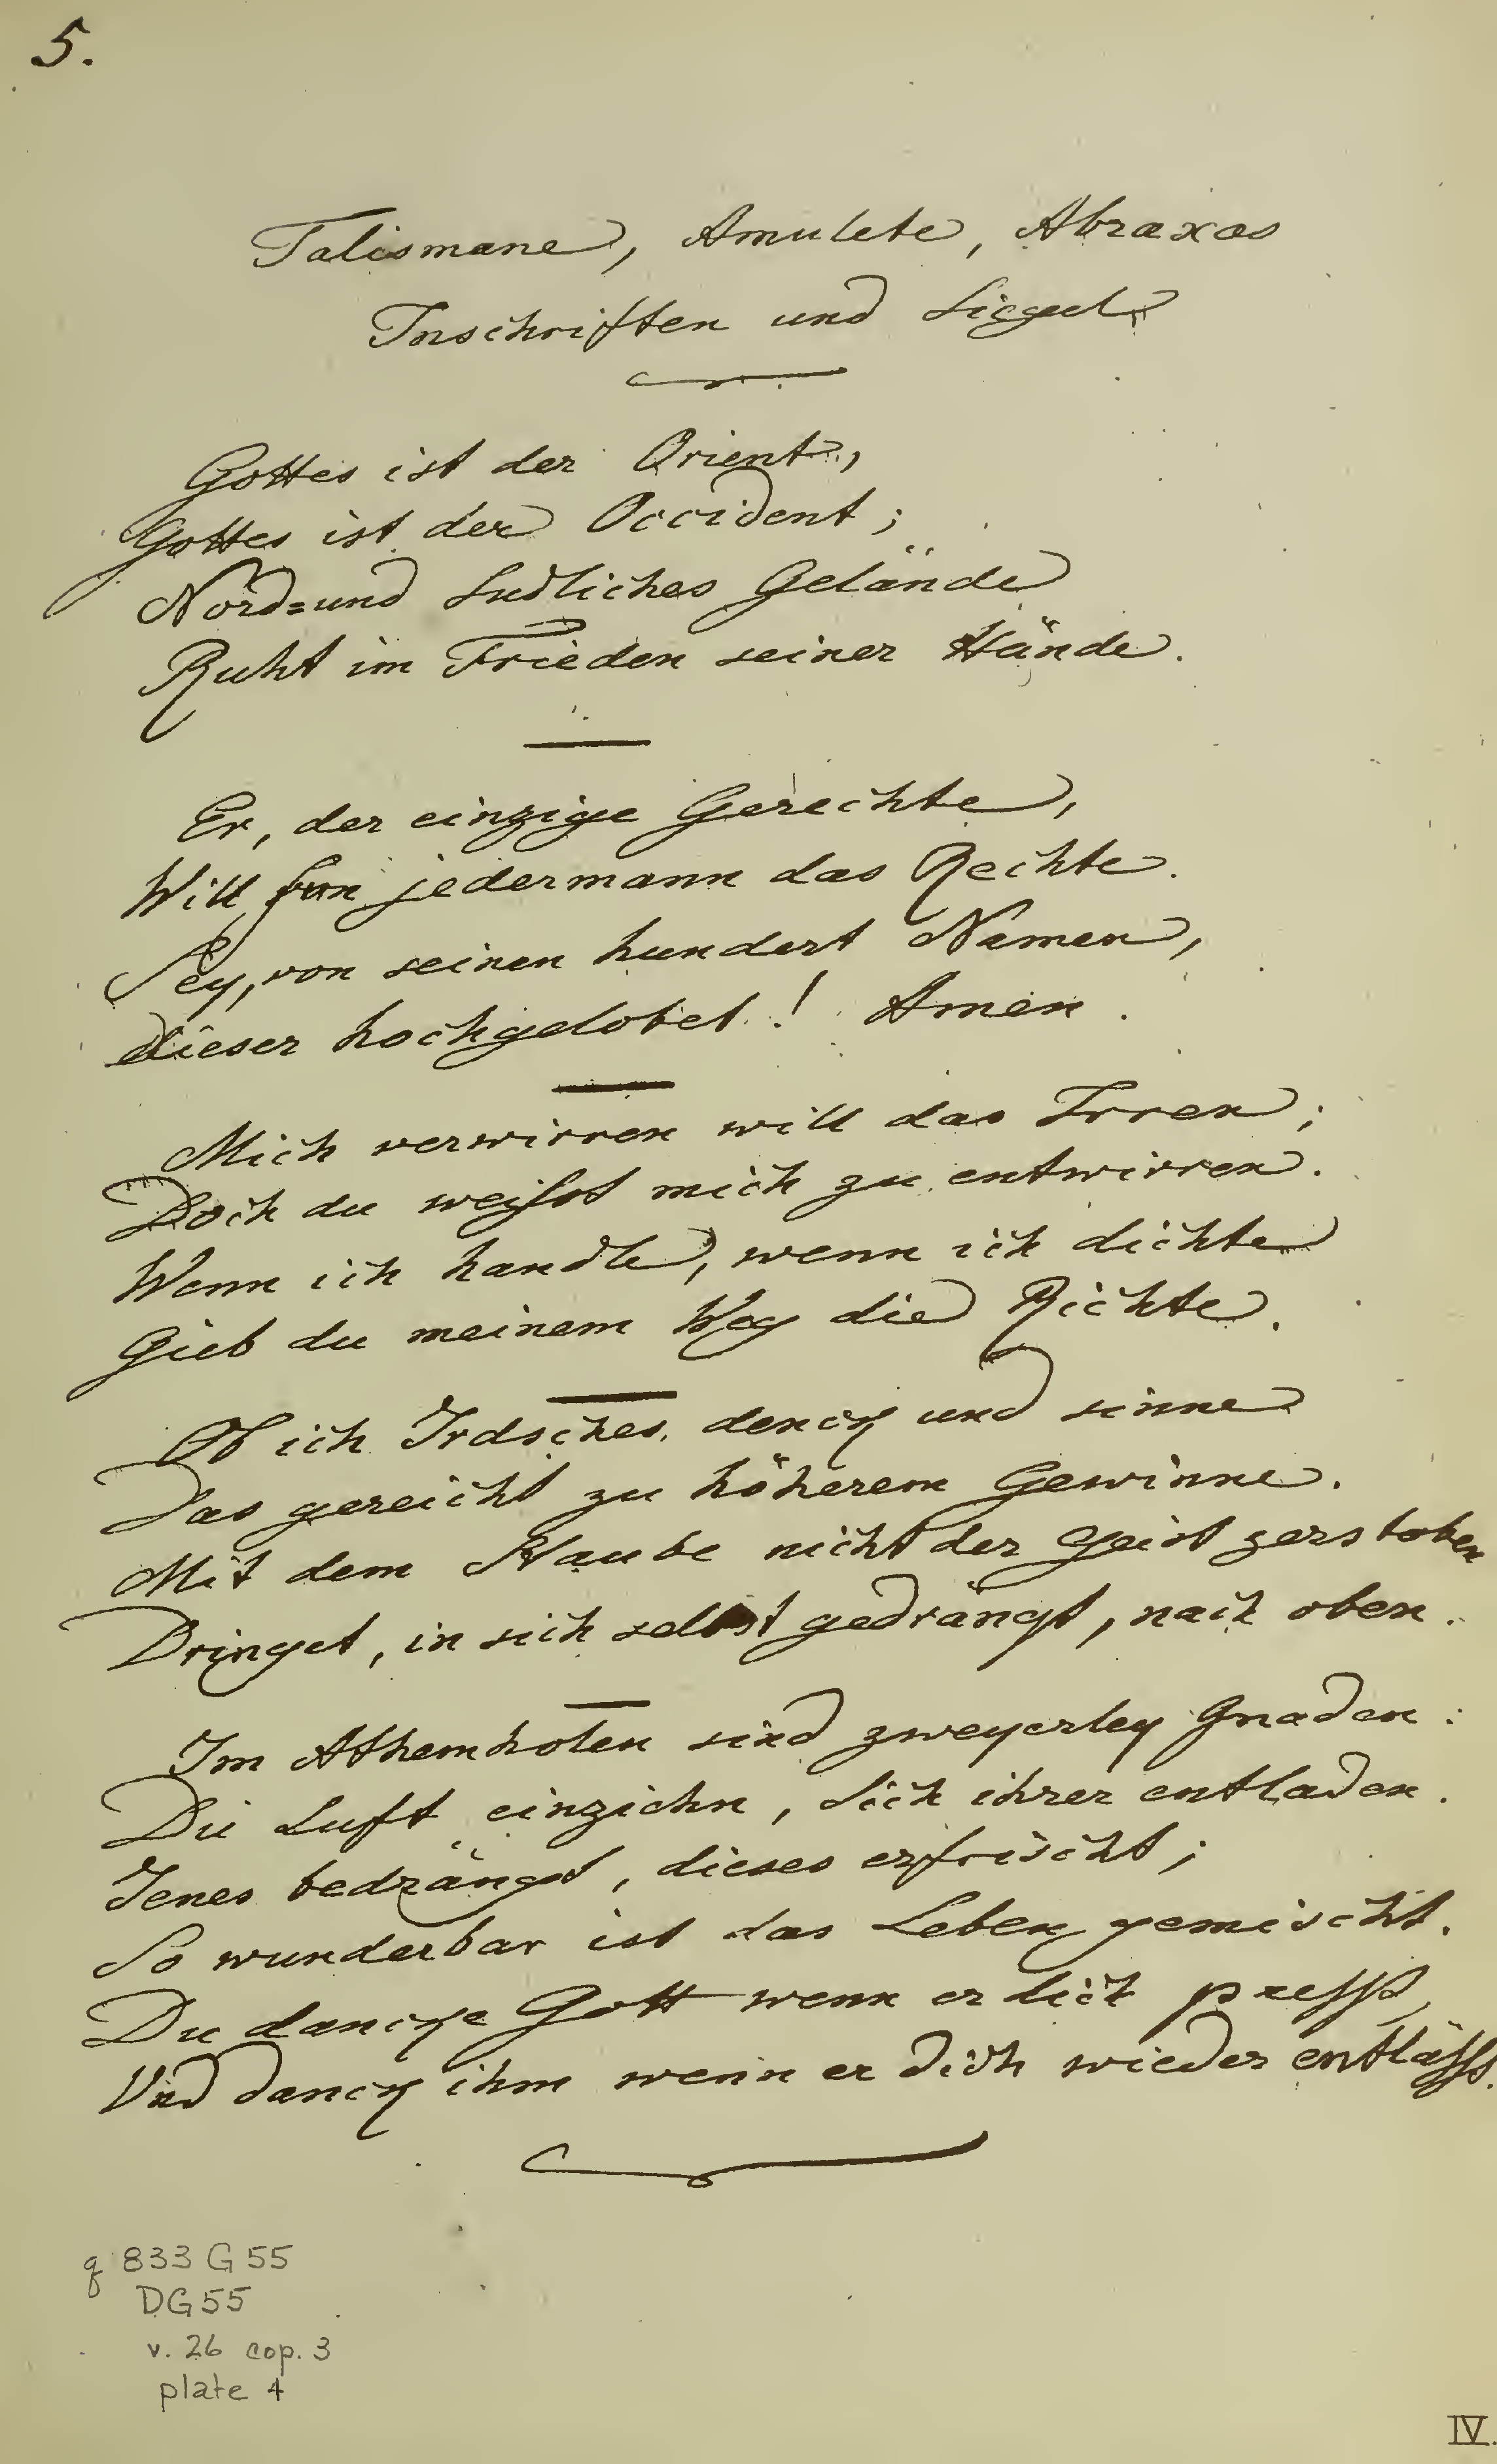 5.
Talismane, Amulete, Abraxas
Inschriften und Siegel
Gottes ist der Orient,
Gottes ist der Occident;
Nord=und Sudliches Gelände
Ruht im Frieden seiner Hände.
Er, der einzige Gerechte,
Will für jedermann das Rechte.
Sey, von seinen hundert Namen,
dieser hochgelobet! Amen.
Mich verwirren will das Irren;
Doch du weißst mich zu entwirren.
Wenn ich handle, wenn ich dichte
Gieb du meinem Weg die Richte.
Ob ich Irdsches denck und sinne
Das gereicht zu höherem Gewinne.
Mit dem Staube nicht der Geist zerstoben
Dringet, in sich selbst gedrängt, nach oben.
Im Athemholen sind zweyerley Gnaden:
Die Luft einziehn, Sich ihrer entladen.
Jenes bedrängt, dieses erfrischt;
So wunderbar ist das Leben gemischt.
Du dancke Gott wenn er dich presst,
Und danck ihm wenn er dich wieder entlässt.
q 833 G55
DG55
v. 26 cop. 3
plate 4
IV.